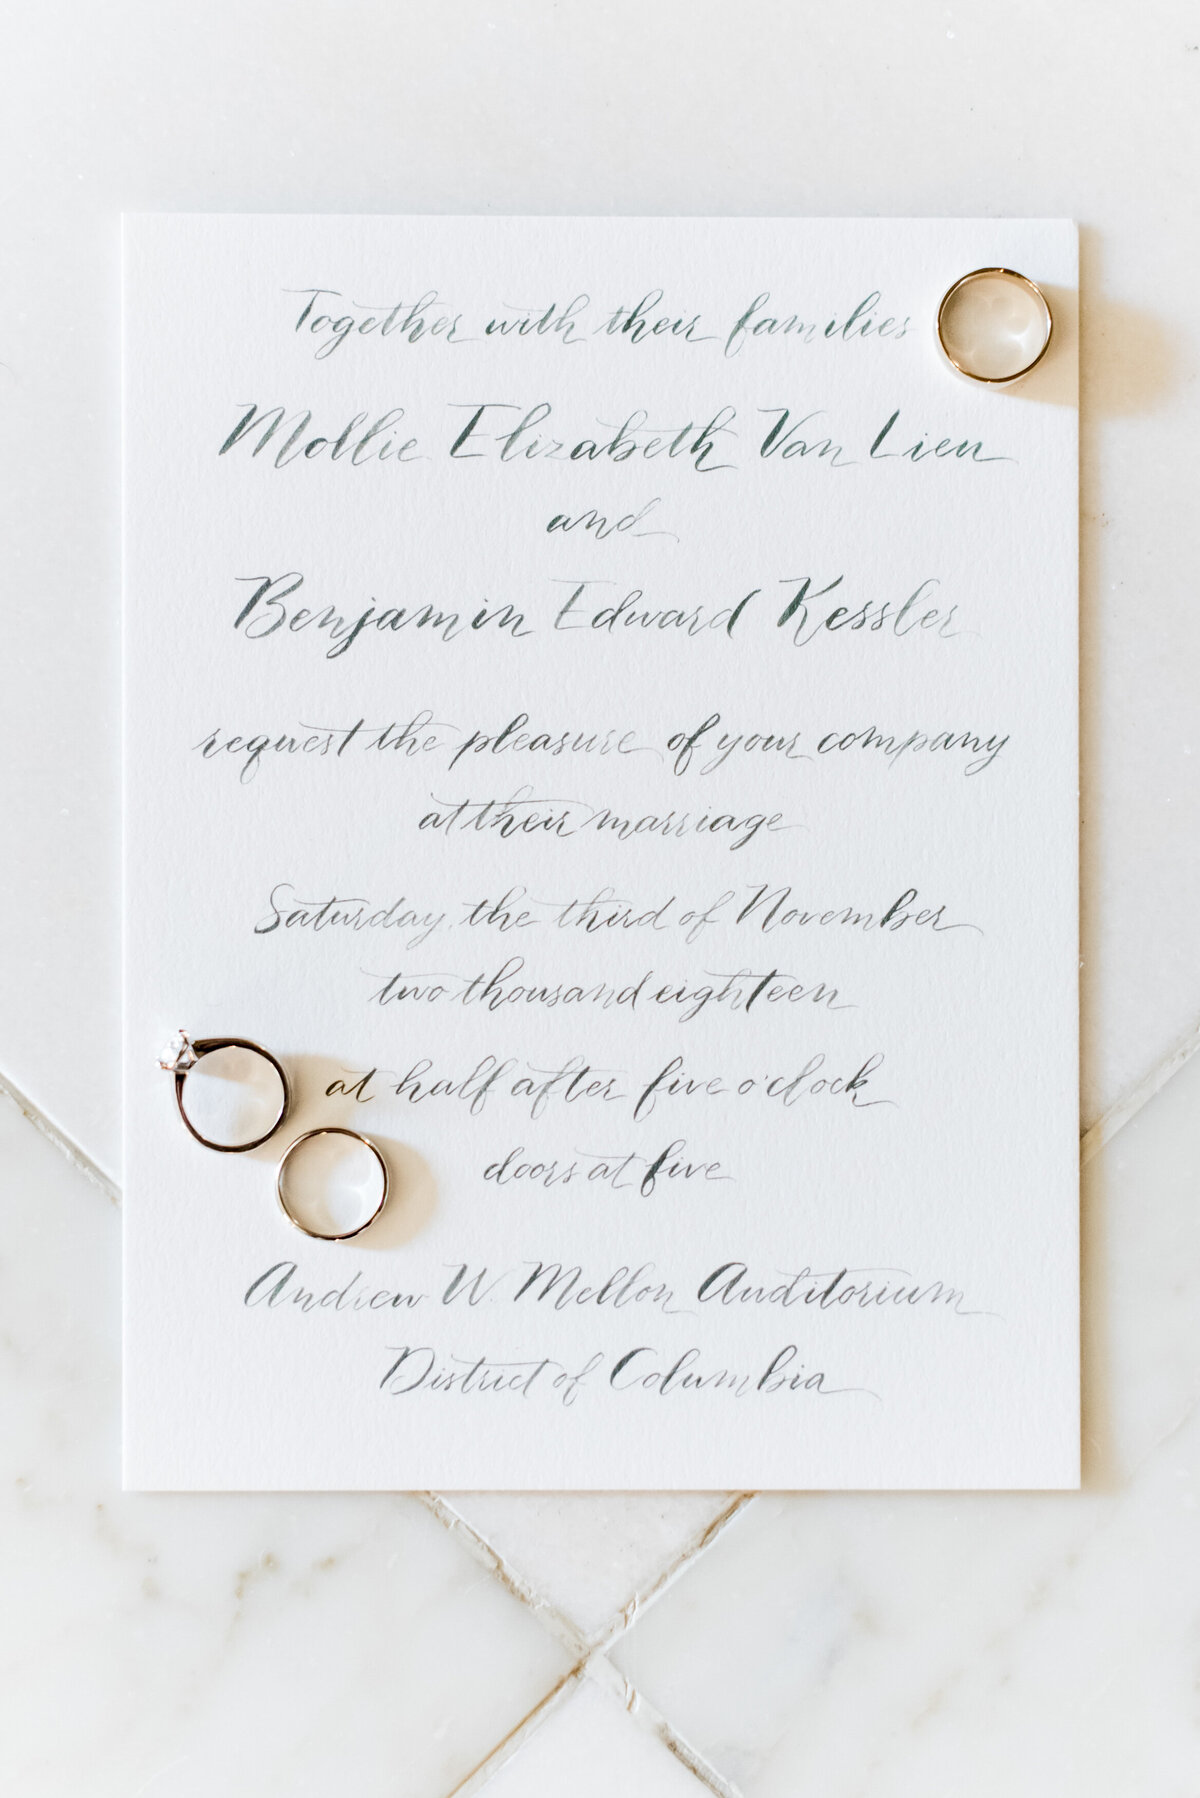 Together with their families
Mollie Elizabeth Van Lieu
and
Benjamin Edward Kessler
request the pleasure of your company
at their marriage
Saturday, the third of November
two thousand eighteen
at half after five o'clock
doors at five
Andrew W. Mellon Auditorium
District of Columbia